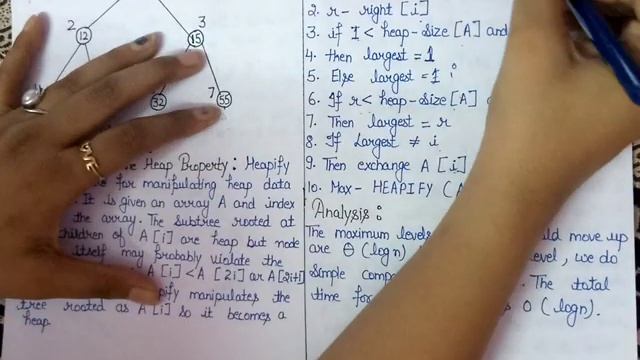 2
3
12
15
32
7
55
Heap Property : Heapify
for manipulating heap data
It is given an array A and index
the array. The subtree rooted at
children of A[i] are heap but node
itself may probably violate the
A[i] < A [2i] or A[2i+1]
manipulates the
tree rooted as A[i] so it becomes a
heap
2. r- right [i]
3. if I < heap-size [A] and
4. then largest = 1
5. Else largest = i
6. If r < heap-size [A]
7. Then largest = r
8. If Largest ≠ i
9. Then exchange A [i]
10. Max- HEAPIFY (A
Analysis :
The maximum levels move up
are θ (log n) level, we do
simple The total
time for O (logn).